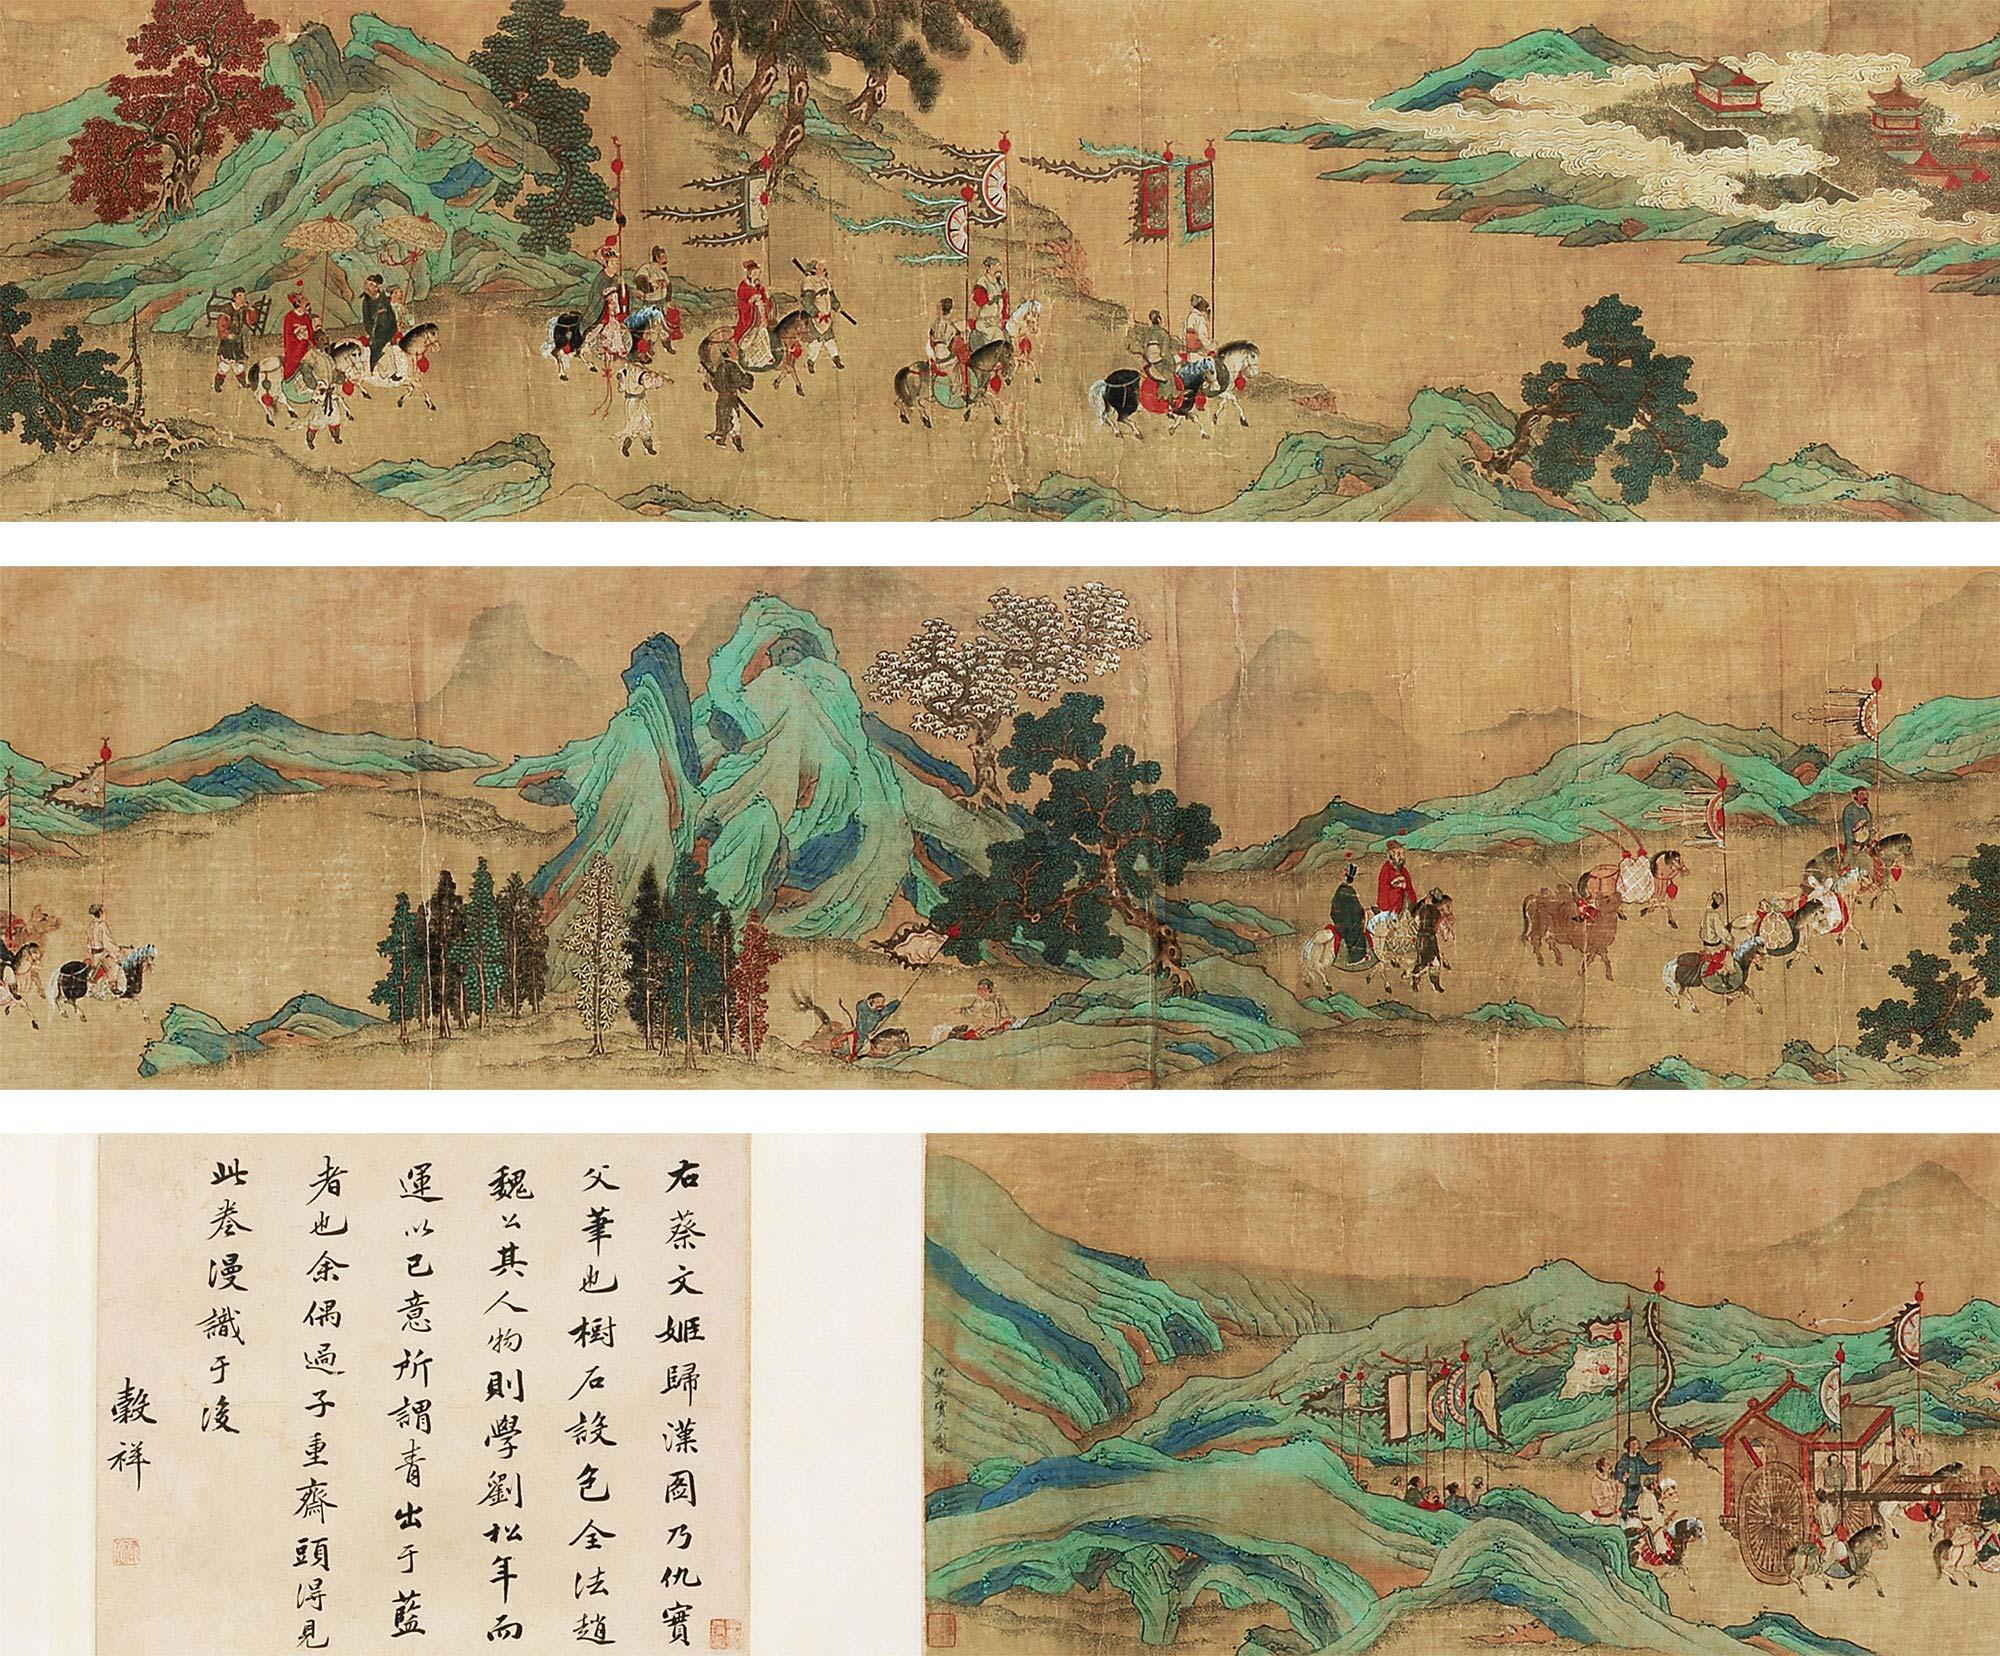 右蔡文姬歸漢圖乃仇實
父筆也樹石設色全法趙
魏公其人物則學劉松年而
運以己意所謂青出于藍
者也余偶過子重齋頭得見
此卷漫識于後
穀祥
仇英實父製